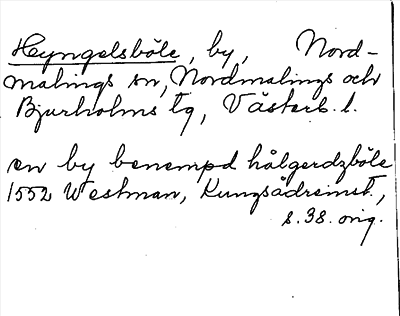 Hyngelsböle, by, Nord-
malings sn, Nordmalings och
Bjurholms tg, Västerb. l.
en by benempd hålgerdzböle
1552 Westman, Kungsådreinst.,
s. 38. orig.